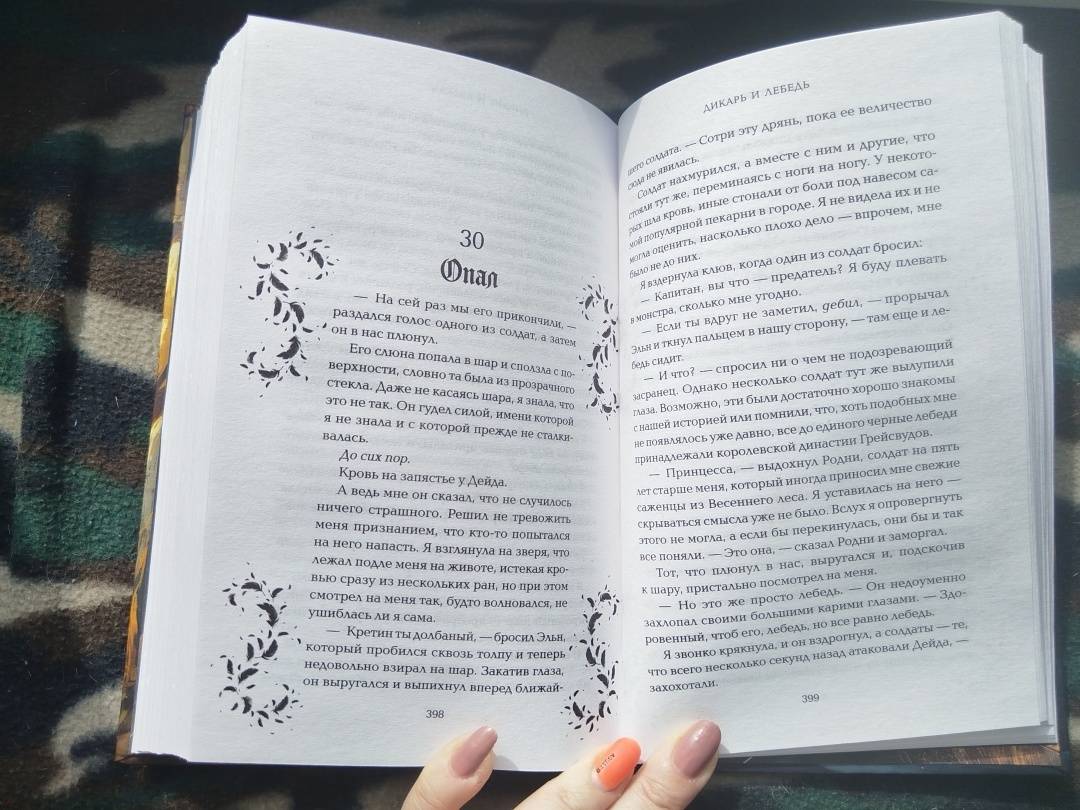 30
Опал
— На сей раз мы его прикончили, —
раздался голос одного из солдат, а затем
он в нас плюнул.
Его слюна попала в шар и сползла с по-
верхности, словно та была из прозрачного
стекла. Даже не касаясь шара, я знала, что
это не так. Он гудел силой, имени которой
я не знала и с которой прежде не сталки-
валась.
До сих пор.
Кровь на запястье у Дейда.
А ведь мне он сказал, что не случилось
ничего страшного. Решил не тревожить
меня признанием, что кто-то попытался
на него напасть. Я взглянула на зверя, что
лежал подле меня на животе, истекая кро-
вью сразу из нескольких ран, но при этом
смотрел на меня так, будто волновался, не
ушиблась ли я сама.
— Кретин ты долбаный, — бросил Эльн,
который пробился сквозь толпу и теперь
недовольно взирал на шар. Закатив глаза,
он выругался и выпихнул вперед ближай-
398
ДИКАРЬ И ЛЕБЕДЬ
шего солдата. — Сотри эту дрянь, пока ее величество
сюда не явилась.
Солдат нахмурился, а вместе с ним и другие, что
стояли тут же, переминаясь с ноги на ногу. У некото-
рых шла кровь, иные стонали от боли под навесом са-
мой популярной пекарни в городе. Я не видела их и не
могла оценить, насколько плохо дело — впрочем, мне
было не до них.
Я вздернула клюв, когда один из солдат бросил:
— Капитан, вы что — предатель? Я буду плевать
в монстра, сколько мне угодно.
— Если ты вдруг не заметил, дебил, — прорычал
Эльн и ткнул пальцем в нашу сторону, — там еще и ле-
бедь сидит.
— И что? — спросил ни о чем не подозревающий
засранец. Однако несколько солдат тут же вылупили
глаза. Возможно, эти были достаточно хорошо знакомы
с нашей историей или помнили, что, хоть подобных мне
не появлялось уже давно, все до единого черные лебеди
принадлежали королевской династии Грейсвудов.
— Принцесса, — выдохнул Родни, солдат на пять
лет старше меня, который иногда приносил мне свежие
саженцы из Весеннего леса. Я уставилась на него —
скрываться смысла уже не было. Вслух я опровергнуть
этого не могла, а если бы перекинулась, они бы и так
все поняли. — Это она, — сказал Родни и заморгал.
Тот, что плюнул в нас, выругался и, подскочив
к шару, пристально посмотрел на меня.
— Но это же просто лебедь. — Он недоуменно
захлопал своими большими карими глазами. — Здо-
ровенный, чтоб его, лебедь, но все равно лебедь.
Я звонко крякнула, и он вздрогнул, а солдаты — те,
что всего несколько секунд назад атаковали Дейда, —
захохотали.
399